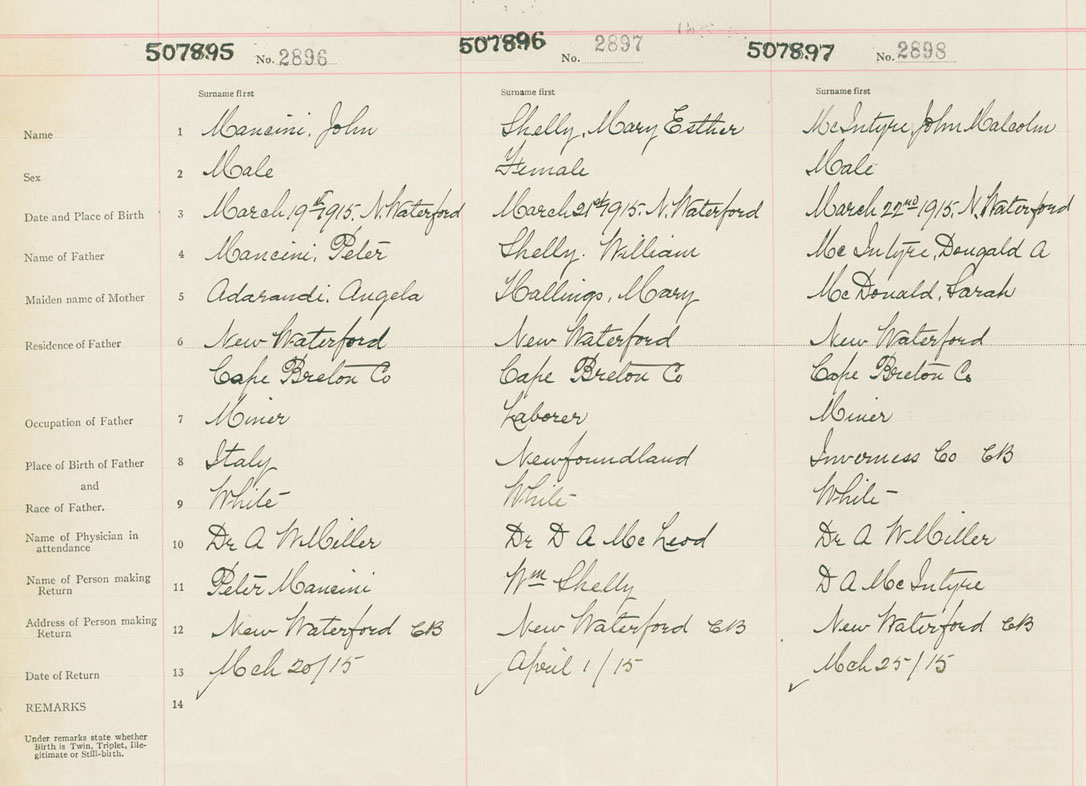 507895 No. 2896 507896 No. 2897 507897 No. 2898
Surname first Surname first Surname first
Name 1 Mancini, John Shelly, Mary Esther McIntyre, John Malcolm
Sex 2 Male Female Male
Date and Place of Birth 3 March 19th 1915. N. Waterford March 21st 1915. N. Waterford March 22nd 1915. N. Waterford
Name of Father 4 Mancini, Peter Shelly. William McIntyre, Dougald A
Maiden name of Mother 5 Adarandi, Angela Hallings, Mary McDonald, Sarah
Residence of Father 6 New Waterford New Waterford New Waterford
Cape Breton Co Cape Breton Co Cape Breton Co
Occupation of Father 7 Miner Laborer Miner
Place of Birth of Father 8 Italy Newfoundland Inverness Co CB
and
Race of Father. 9 White White White
Name of Physician in
attendance 10 Dr A W Miller Dr D A McLeod Dr A W Miller
Name of Person making
Return 11 Peter Mancini Wm Shelly D A McIntyre
Address of Person making
Return 12 New Waterford CB New Waterford CB New Waterford CB
Date of Return 13 Mch 20/15 April 1/15 Mch 25/15
REMARKS 14
Under remarks state whether
Birth is Twin, Triplet, Ille-
gitimate or Still-birth.